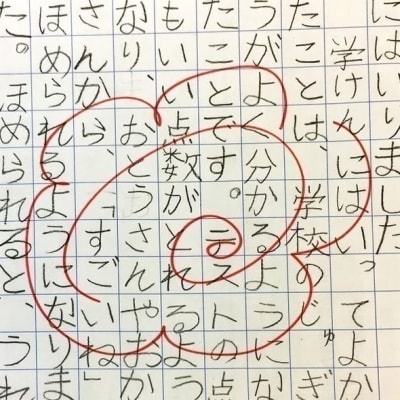 にはいりました
学けんにはいってよか
たことは、学校のじゅぎ
うがよく分かるようにな
たことです。テストの点
もいい点数がとれるよう
なり、おとうさんやおか
さんから、「すごいね」
ほめられるようになりま
た。ほめられると、うれ